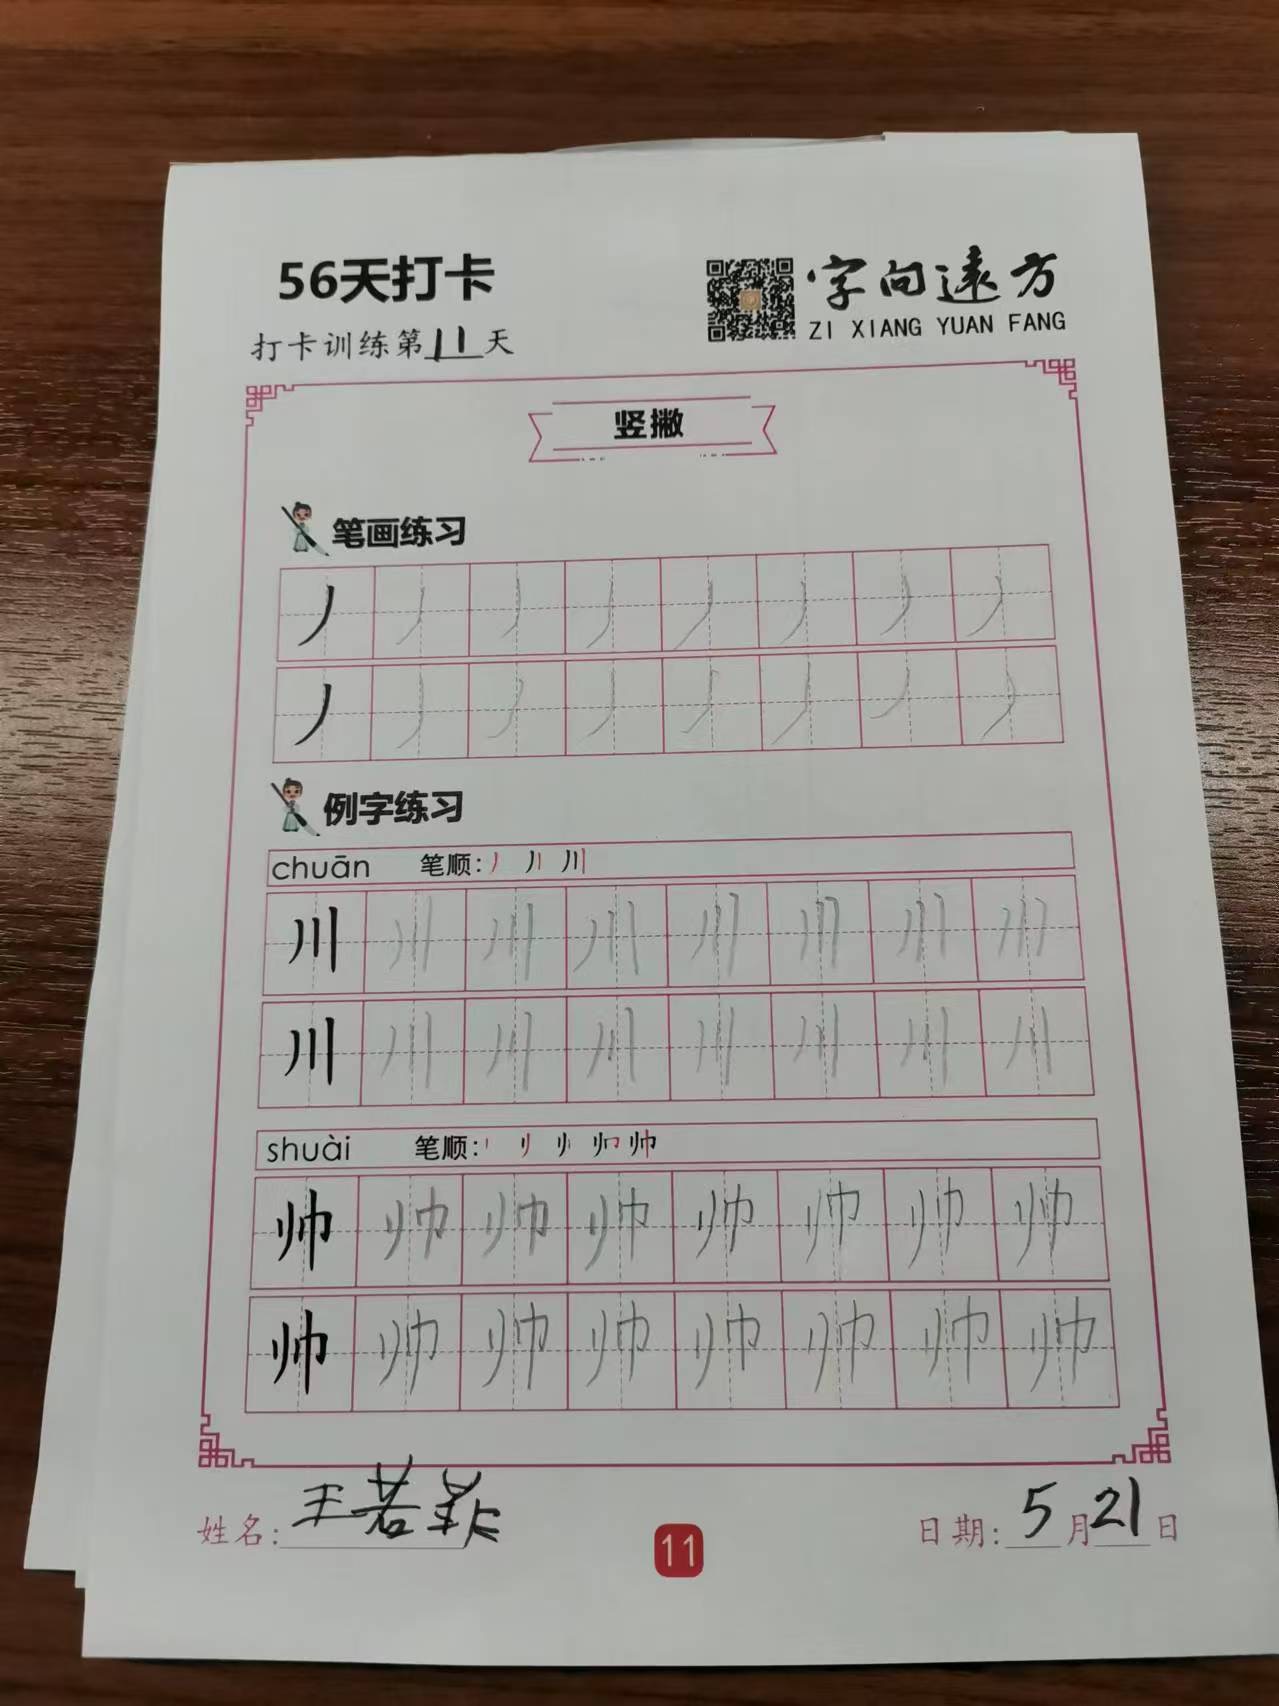 56天打卡
字向遠方
ZI XIANG YUAN FANG
打卡训练第11天
竖撇
笔画练习
丿丿丿丿丿丿丿丿
丿丿丿丿丿丿丿丿
例字练习
chuān 笔顺：丿 丿丨 川
川川川川川川川川
川川川川川川川川
shuài 笔顺：
帅帅帅帅帅帅帅帅
帅帅帅帅帅帅帅帅
姓名：王若
日期：5月21日
11